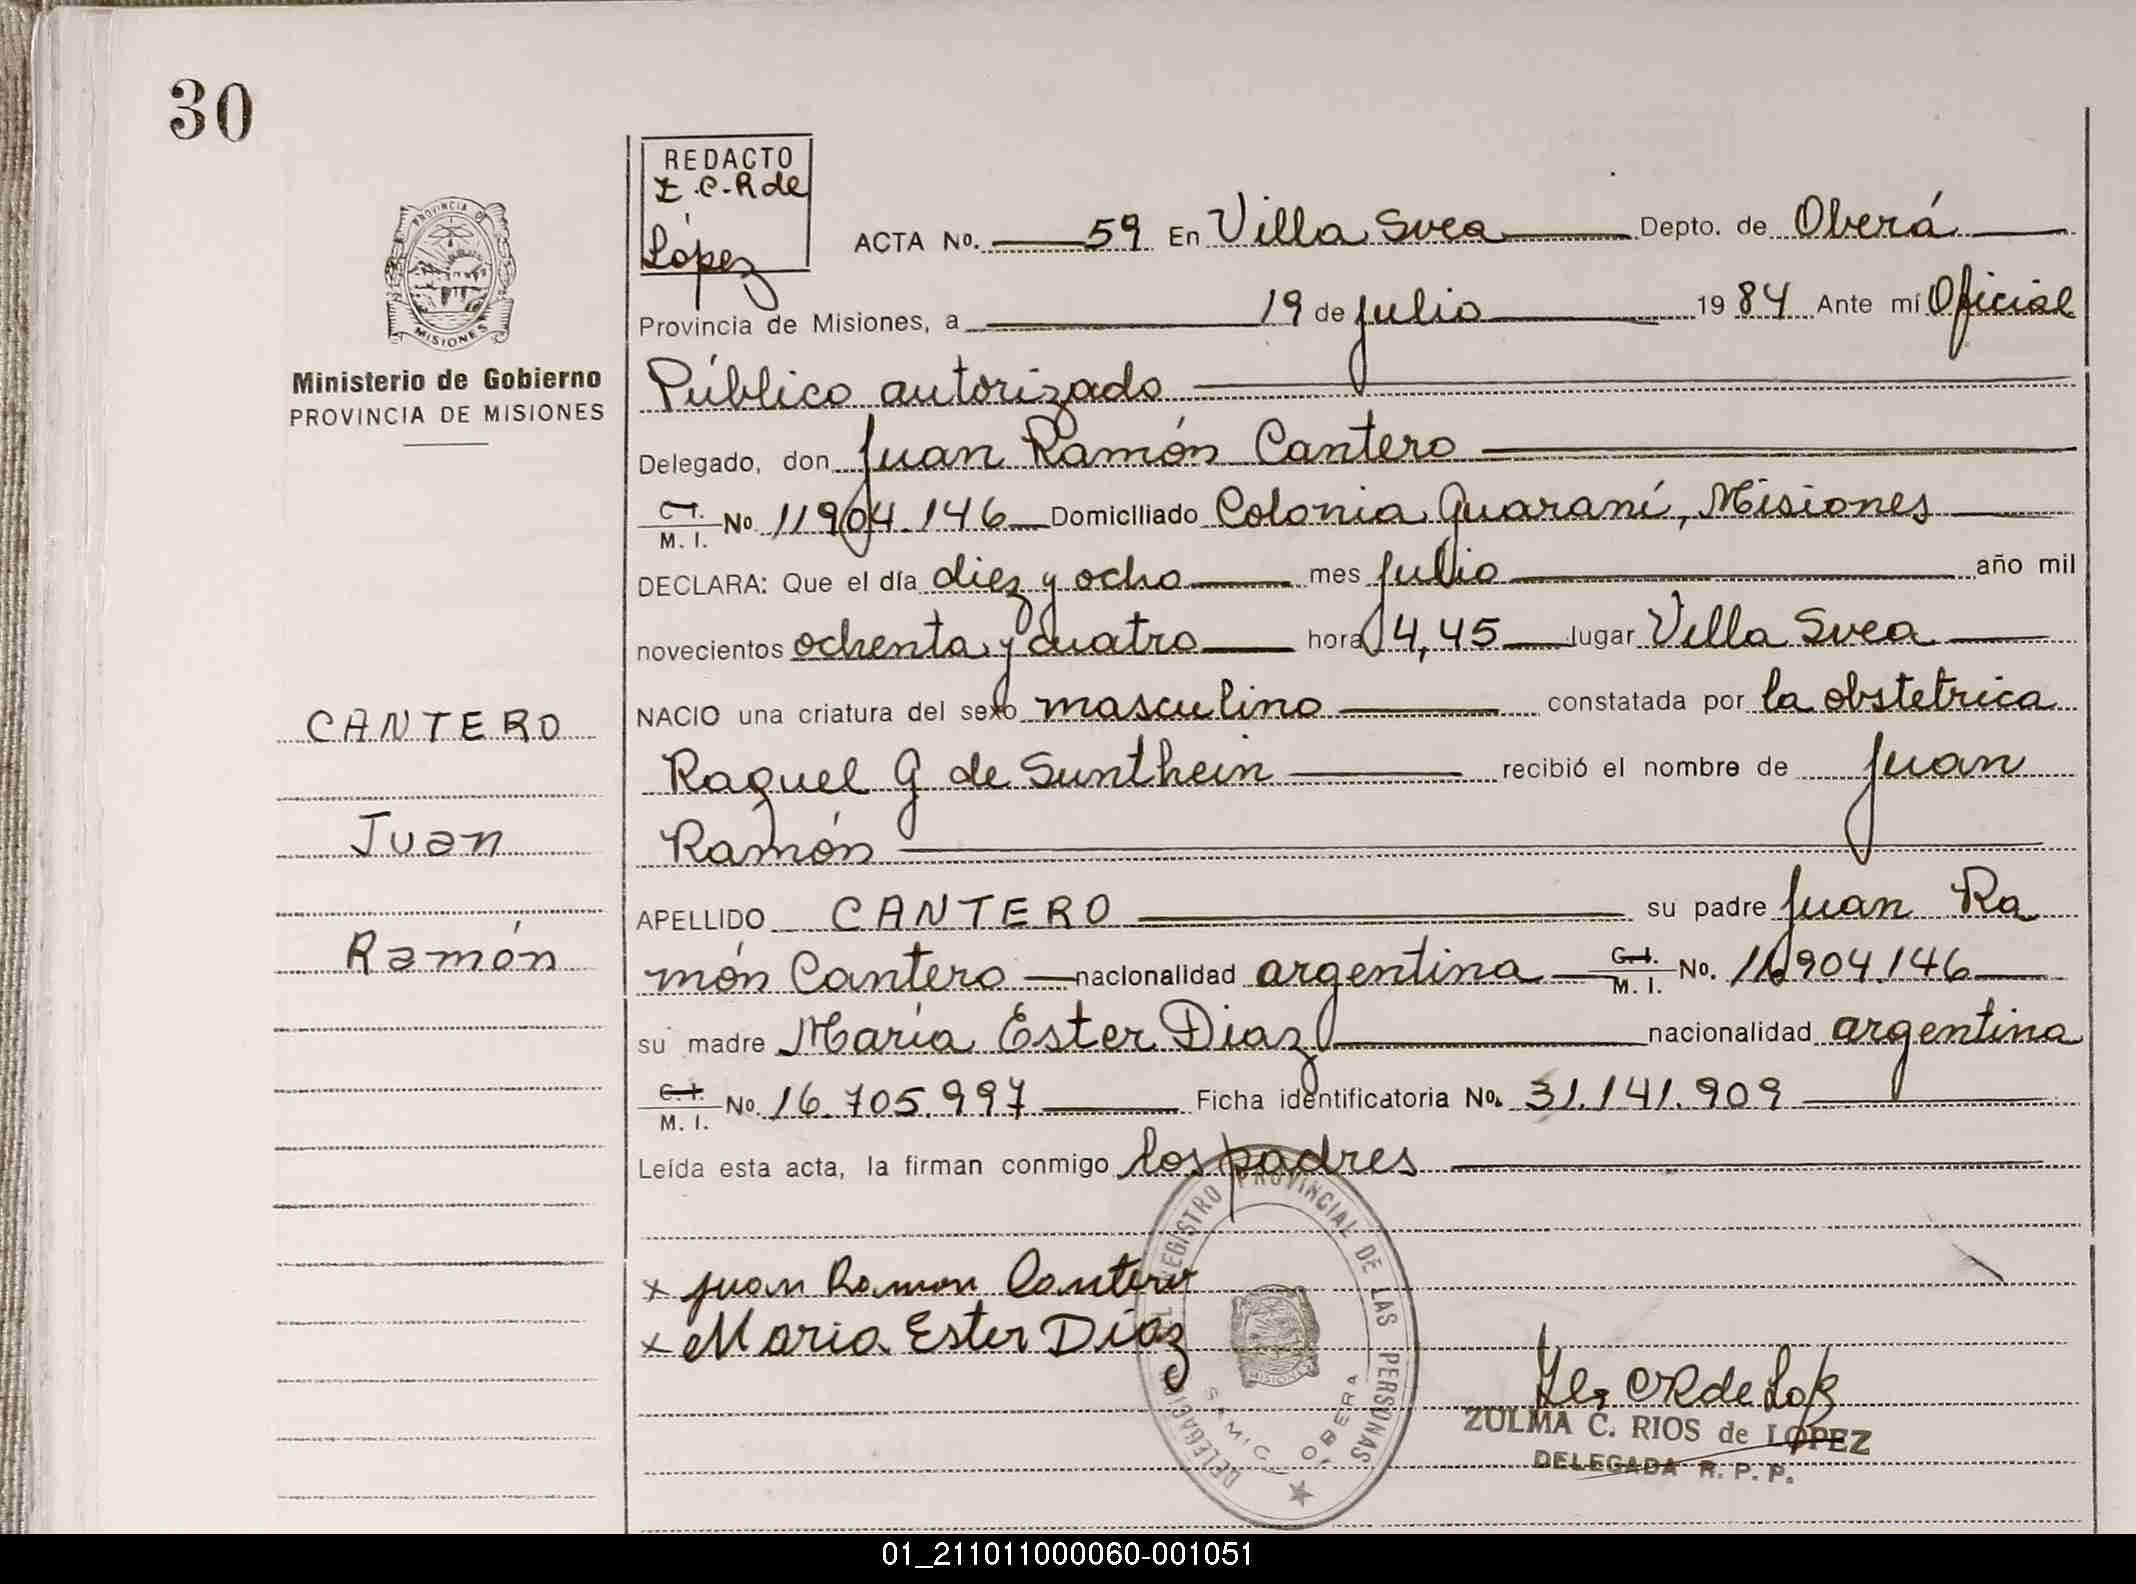 30
REDACTO
Z.C.R de
López
ACTA No. 59 En Villa Svea Depto. de Oberá
PROVINCIA DE
MISIONES
Provincia de Misiones, a 19 de julio 1984 Ante mí Oficial
Ministerio de Gobierno
PROVINCIA DE MISIONES
Público autorizado
Delegado, don Juan Ramón Cantero
C.I.
M. I. No. 11904.146 Domiciliado Colonia Guaraní, Misiones
DECLARA: Que el día diez y ocho mes julio año mil
novecientos ochenta y cuatro hora 4,45 lugar Villa Svea
NACIO una criatura del sexo masculino constatada por la obstetrica
Raquel G de Sunthein recibió el nombre de Juan
Ramón
CANTERO
Juan
Ramón
APELLIDO CANTERO su padre Juan Ra
món Cantero nacionalidad argentina C.I. M. I. No. 11904.146
su madre María Ester Diaz nacionalidad argentina
C.I.
M. I. No. 16.705.997 Ficha identificatoria No. 31.141.909
Leída esta acta, la firman conmigo los padres
x Juan Ramon Cantero
x Maria Ester Díaz
DELEGACION REGISTRO PROVINCIAL DE LAS PERSONAS
MISIONES
SAMIC OBERA
ZULMA C. RIOS de LOPEZ
DELEGADA R. P. P.
01_211011000060-001051